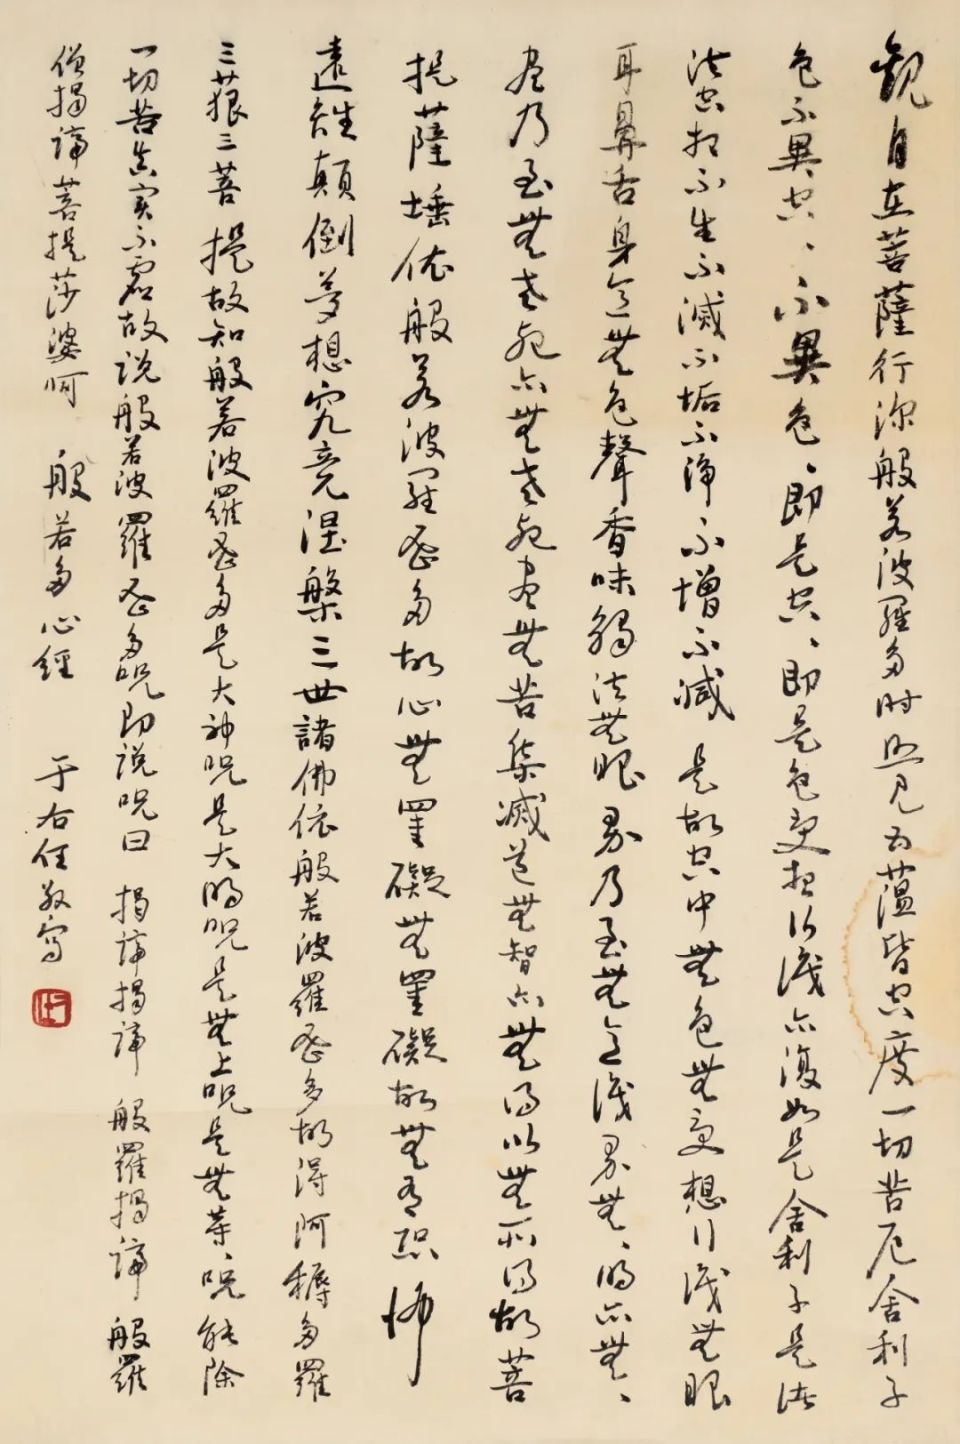 觀自在菩薩行深般若波羅多時照見五蘊皆空度一切苦厄舍利子
色不異空、不異色、即是空、即是色受想行識亦復如是舍利子是諸
法空相不生不滅不垢不淨不增不減 是故空中無色無受想行識無眼
耳鼻舌身意無色聲香味觸法無眼界乃至無意識界無、明亦無、
盡乃至無老死亦無老死盡無苦集滅道無智亦無得以無所得故菩
提薩埵依般若波羅蜜多故心無罣礙無罣礙故無有恐怖
遠離顛倒夢想究竟涅槃三世諸佛依般若波羅蜜多故得阿耨多羅
三藐三菩提故知般若波羅蜜多是大神咒是大明咒是無上咒是無等、咒能除
一切苦真實不虛故說般若波羅蜜多咒即說咒曰 揭諦揭諦 般羅揭諦 般羅
僧揭諦菩提莎婆呵 般若多心經 于右任敬寫